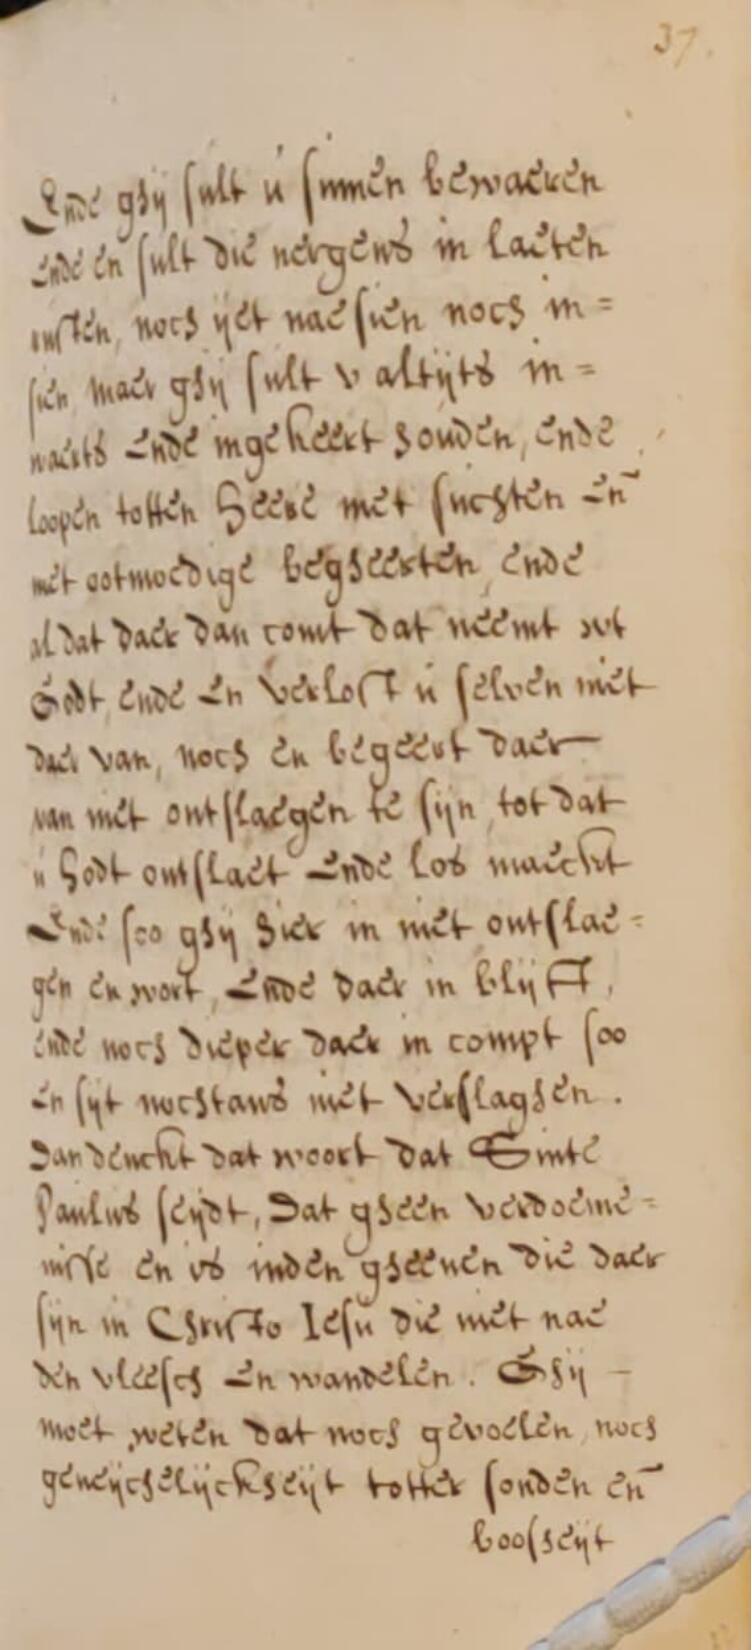 37.
Ende ghij sult ú sinnen bewaeren
ende en sult die nergens in laeten
rusten, noch ijet nae sien noch in=
sien, maer ghij sult v altijts in=
waerts ende ingekeert houden, ende
loopen totten Heere met suchten en̄
met ootmoedige begheerten, ende
al dat daer dan comt dat neemt wt
Godt, ende en verlost ú selven niet
daer van, noch en begeert daer
van niet ontslaegen te sijn, tot dat
ú Godt ontslaet ende los maeckt
Ende soo ghij hier in niet ontslae=
gen en wort, ende daer in blijft,
ende noch dieper daer in compt soo
en sijt nochtans niet verslaghen.
Dan denckt dat woort dat Sinte
Paulus seijdt, Dat gheen verdoeme=
nisse en is inden gheenen die daer
sijn in Christo Iesú die niet nae
den vleesch en wandelen. Ghij
moet weten dat noch gevoelen, noch
geneijchelijckheijt totter sonden en̄
boosheijt